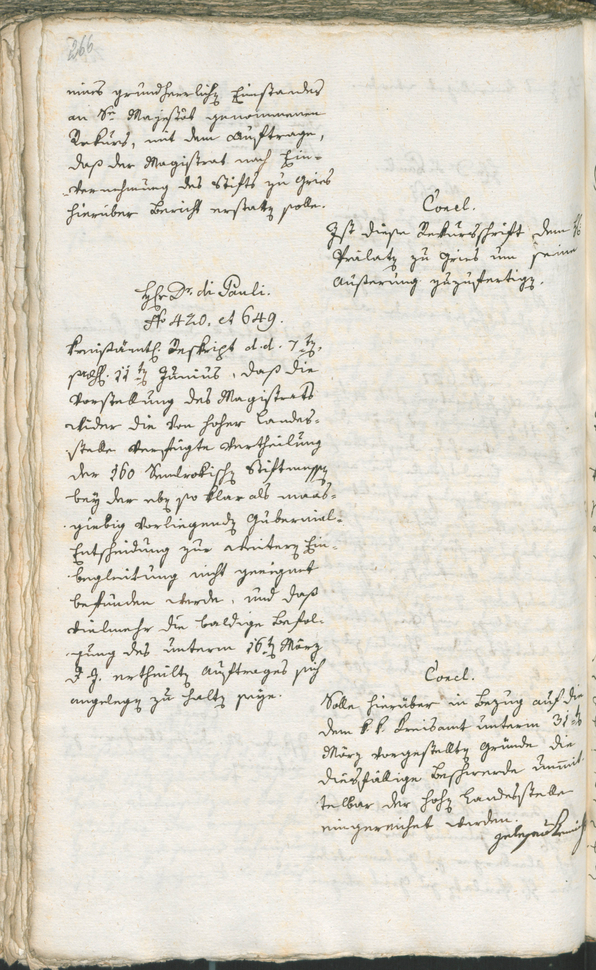 266
eines grundherrlichen Einstandes
an Sr. Majestät genommenen
Rekurs, mit dem Auftrage,
daß der Magistrat nach Ein-
vernehmung des Stifts zu Gries
hierüber Bericht erstatten solle.
Concl.
Ist diese Rekursschrift dem H:
Prälaten zu Gries um seine
Äußerung zuzufertigen.
Hr. Dr. di Pauli.
No 420. et 649.
Kreisämtl. Reskript d. d. 7ten,
11ten Junius, daß die
Vorstellung des Magistrats
wider die von hoher Landes-
stelle verfügte Vertheilung
der 160 Stiftmessen
bey der eben so klar als maas-
giebig vorliegenden Gubernial-
Entscheidung zur weitern Ein-
begleitung nicht geeignet
befunden werde, und daß
vielmehr die baldige Befol-
gung des unterm 16ten März
d. J. ertheilten Auftrages sich
angelegen zu halten seye.
Concl.
Solle hierüber in Bezug auf die
dem k. k. Kreisamt unterm 31ten
März vorgestellten Gründe die
diesfällige Beschwerde unmit-
telbar der hohen Landesstelle
eingereichet werden.